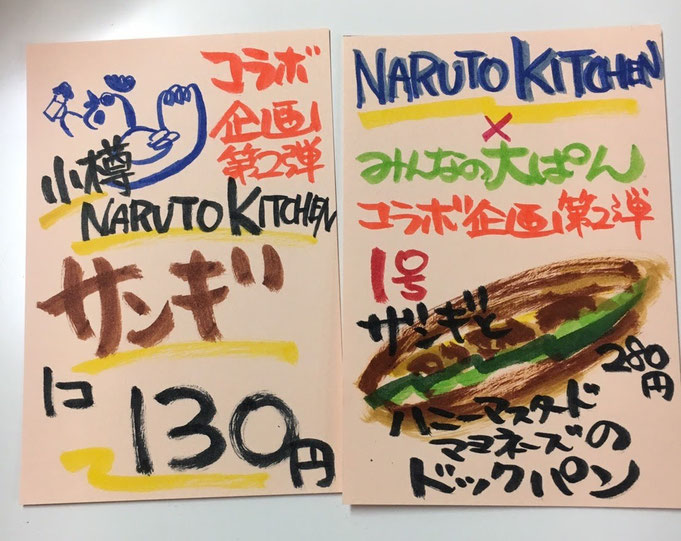 コラボ
企画
第2弾
小樽
NARUTO KITCHEN
サンギ
1コ
130円
NARUTO KITCHEN
×
みんなの大ぱん
コラボ企画第2弾
1号
ザンギと
280円
ハニーマスタード
マヨネーズの
ドックパン